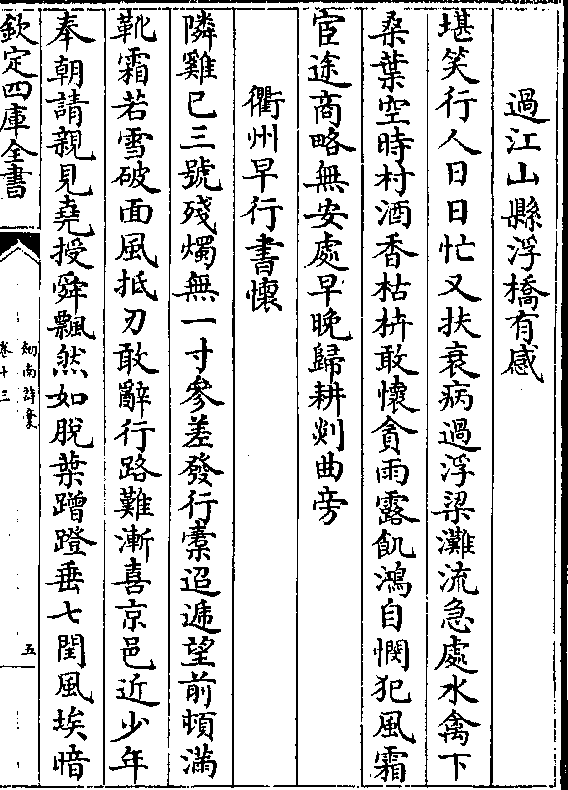 過江山縣浮橋有感
堪笑行人日日忙又扶衰病過浮梁灘流急處水禽下
桑葉空時村酒香枯枿敢懷貪雨露飢鴻自憫犯風霜
宦途商略無安處早晚歸耕剡曲旁
衢州早行書懷
隣雞已三號殘燭無一寸參差發行橐迢遞望前頓滿
靴霜若雪破面風抵刃敢辭行路難漸喜京邑近少年
奉朝請親見堯授舜飄然如脫葉蹭蹬垂七閏風埃暗
欽定四庫全書
劍南詩稾
卷十三
五